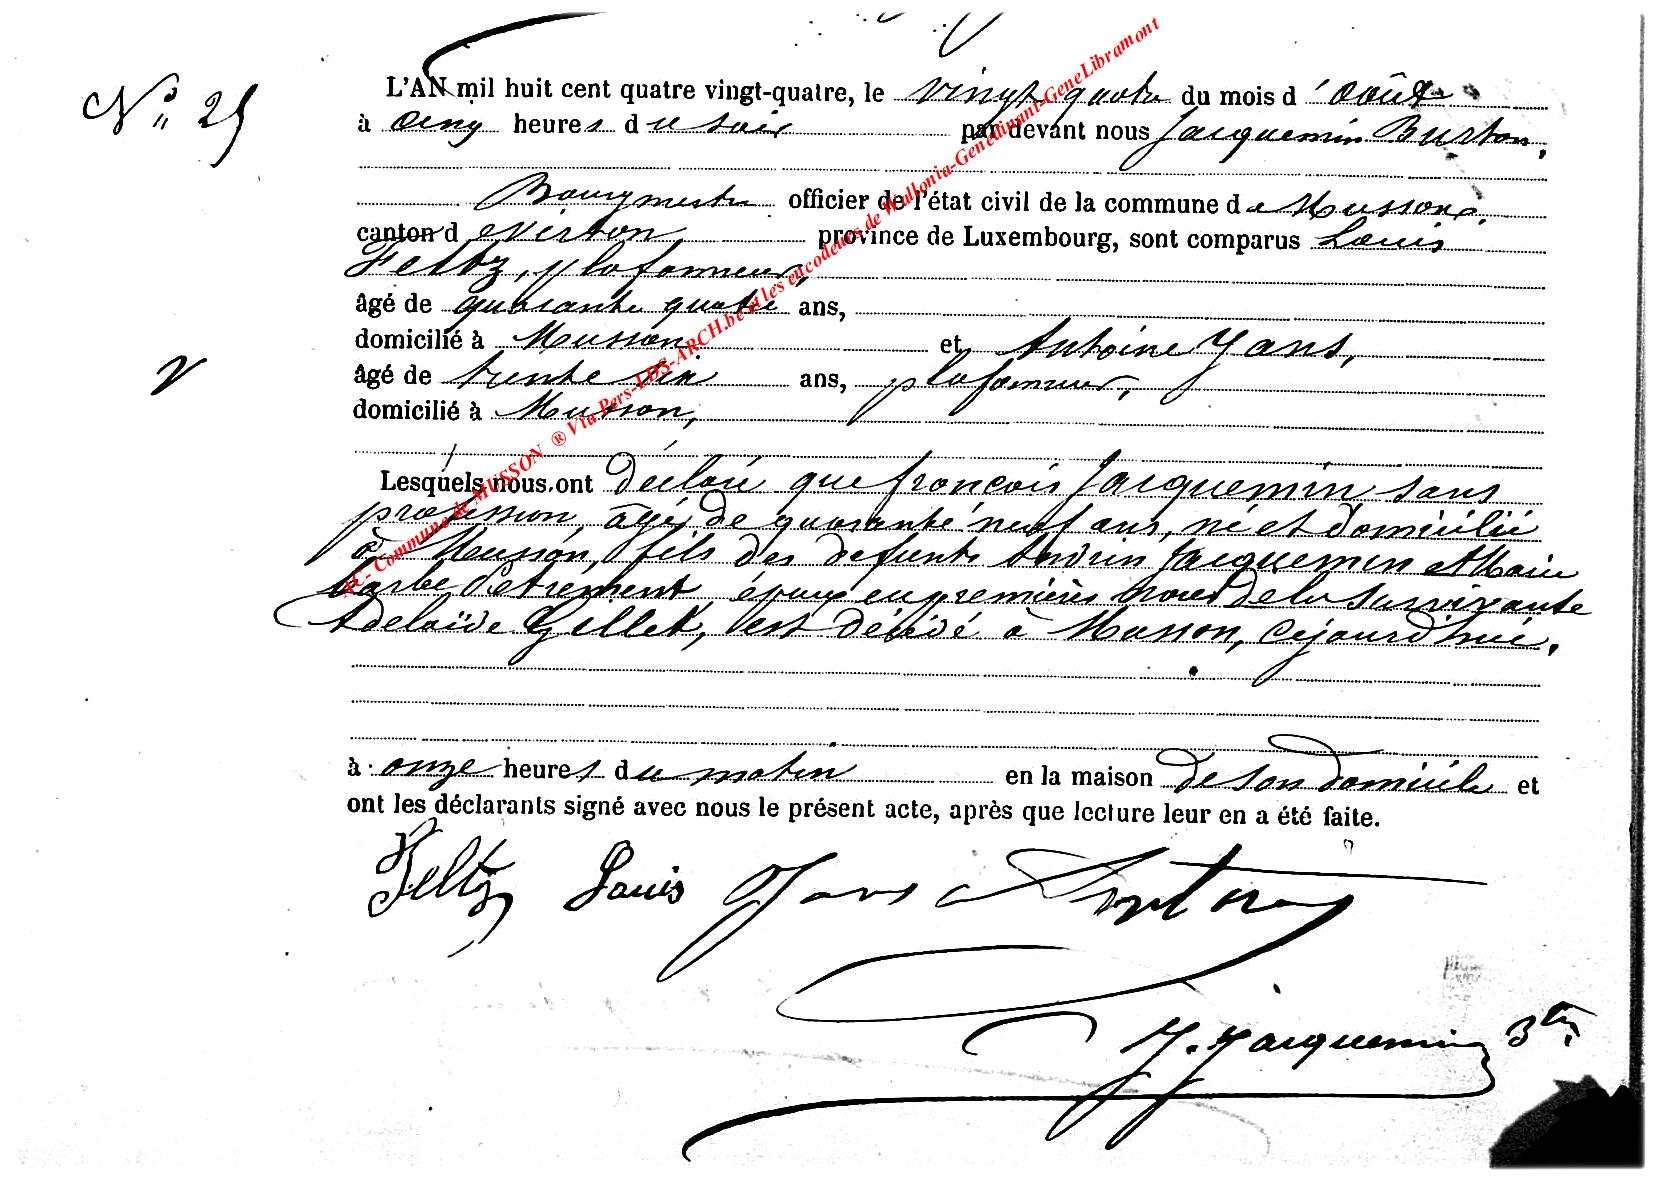 N° 25
L'AN mil huit cent quatre vingt-quatre, le vingt quatre du mois d'août
à cinq heures du soir par devant nous Jacquemin Burton,
Bourgmestre officier de l'état civil de la commune de Musson,
canton de Virton, province de Luxembourg, sont comparus Louis
Feltz, plafonneur,
âgé de quarante quatre ans,
domicilié à Musson, et Antoine Jans,
âgé de trente six ans, plafonneur,
domicilié à Musson,
Lesquels nous ont déclaré que françois Jacquemin sans
profession, âgé de quarante neuf ans, né et domicilié
à Musson, fils des defunts Jacquemin et Marie
barbe époux en premières noces de la survivante
Adelaïde Gillet, est décédé à Musson, cejourd'hui,
à onze heures du matin en la maison de son domicile et
ont les déclarants signé avec nous le présent acte, après que lecture leur en a été faite.
Feltz Louis Jans Antoine
J. Jacquemin Btn
AC- Commune de MUSSON ® Via Pers-LDS-ARCH.be et les encodeurs de Wallonia-Genedinant-GeneLibramont